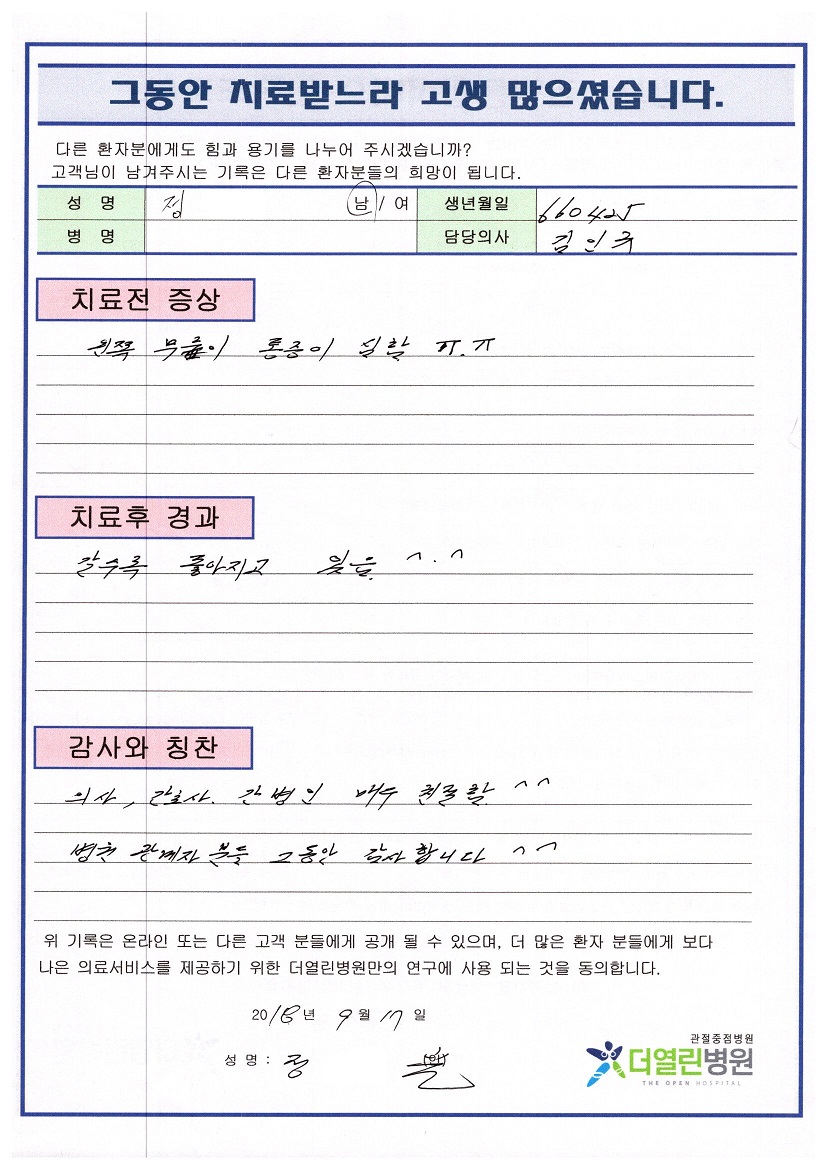 그동안 치료받느라 고생 많으셨습니다.
다른 환자분에게도 힘과 용기를 나누어 주시겠습니까?
고객님이 남겨주시는 기록은 다른 환자분들의 희망이 됩니다.
성 명 정 남 / 여 생년월일 660425
병 명 담당의사 김인국
치료전 증상
왼쪽 무릎이 통증이 심함 ㅠ.ㅠ
치료후 경과
갈수록 좋아지고 있음 ^.^
감사와 칭찬
의사, 간호사. 간병인 매우 친절함 ^^
병원 관계자 분들 그동안 감사합니다 ^^
위 기록은 온라인 또는 다른 고객 분들에게 공개 될 수 있으며, 더 많은 환자 분들에게 보다
나은 의료서비스를 제공하기 위한 더열린병원만의 연구에 사용 되는 것을 동의합니다.
2018년 9월 17일
성 명 : 정
관절중점병원
더열린병원
THE OPEN HOSPITAL